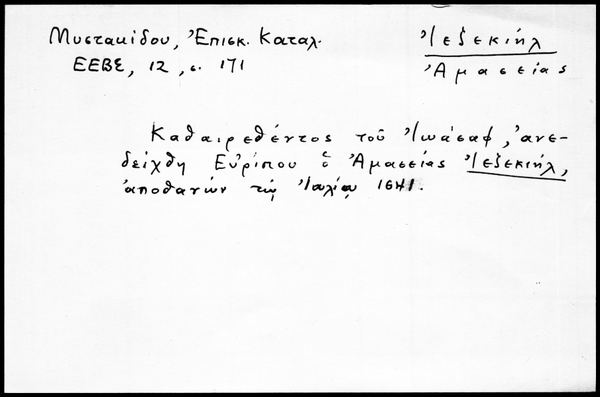 Μυστακίδου, Ἐπισκ. Καταλ.
ΕΕΒΣ, 12, σ. 171
Ἰεζεκιήλ
Ἀμασείας
Καθαιρεθέντος τοῦ Ἰωάσαφ, ἀνε-
δείχθη Εὐρίπου ὁ Ἀμασείας Ἰεζεκιήλ,
ἀποθανών τῷ Ἰουλίῳ 1641.